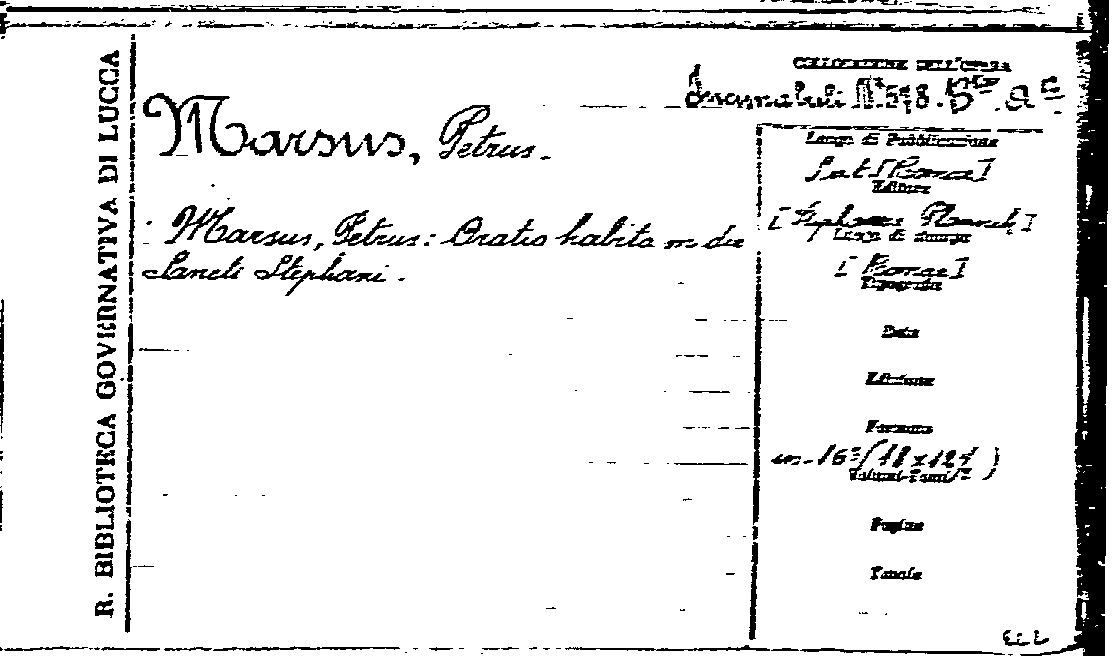 R. BIBLIOTECA GOVERNATIVA DI LUCCA
COLLOCAZIONE DELL'OPERA
Incunabuli N.° 518.
Marsus, Petrus.
Marsus, Petrus: Oratio habita in die
Sancti Stephani.
Luogo di Pubblicazione
[Romae]
Editore
[Stephanus Planck]
Luogo di stampa
[Romae]
Tipografia
Data
Edizione
Formato
in-16°
Volumi-Tomi
Pagine
Tavole